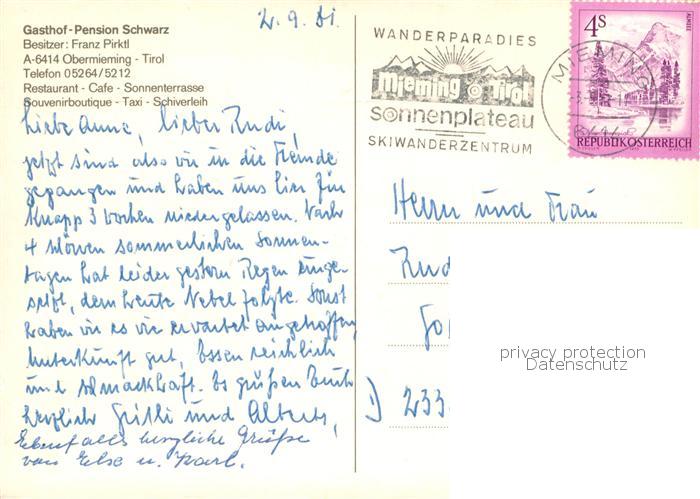 Gasthof-Pension Schwarz
Besitzer: Franz Pirktl
A-6414 Obermieming - Tirol
Telefon 05264/5212
Restaurant - Cafe - Sonnenterrasse
Souvenirboutique - Taxi - Schiverleih
2.9.81.
Liebe Anne, lieber Rudi,
jetzt sind also wir in die Fremde
gegangen und haben uns hier für
knapp 3 Wochen niedergelassen. Nach
4 schönen sommerlichen Sonnen-
tagen hat leider gestern Regen einge-
setzt, dem heute Nebel folgte. Sonst
haben wir es wie erwartet angetroffen,
Unterkunft gut, Essen reichlich
und schmackhaft. Es grüßen Euch
herzlich und
Ebenfalls herzliche Grüße
von Else u. Karl.
WANDERPARADIES
mieming Tirol
Sonnenplateau
SKIWANDERZENTRUM
MIEMING
4S
ALMSEE
REPUBLIK ÖSTERREICH
Herrn und Frau
Rud
D 233
privacy protection
Datenschutz